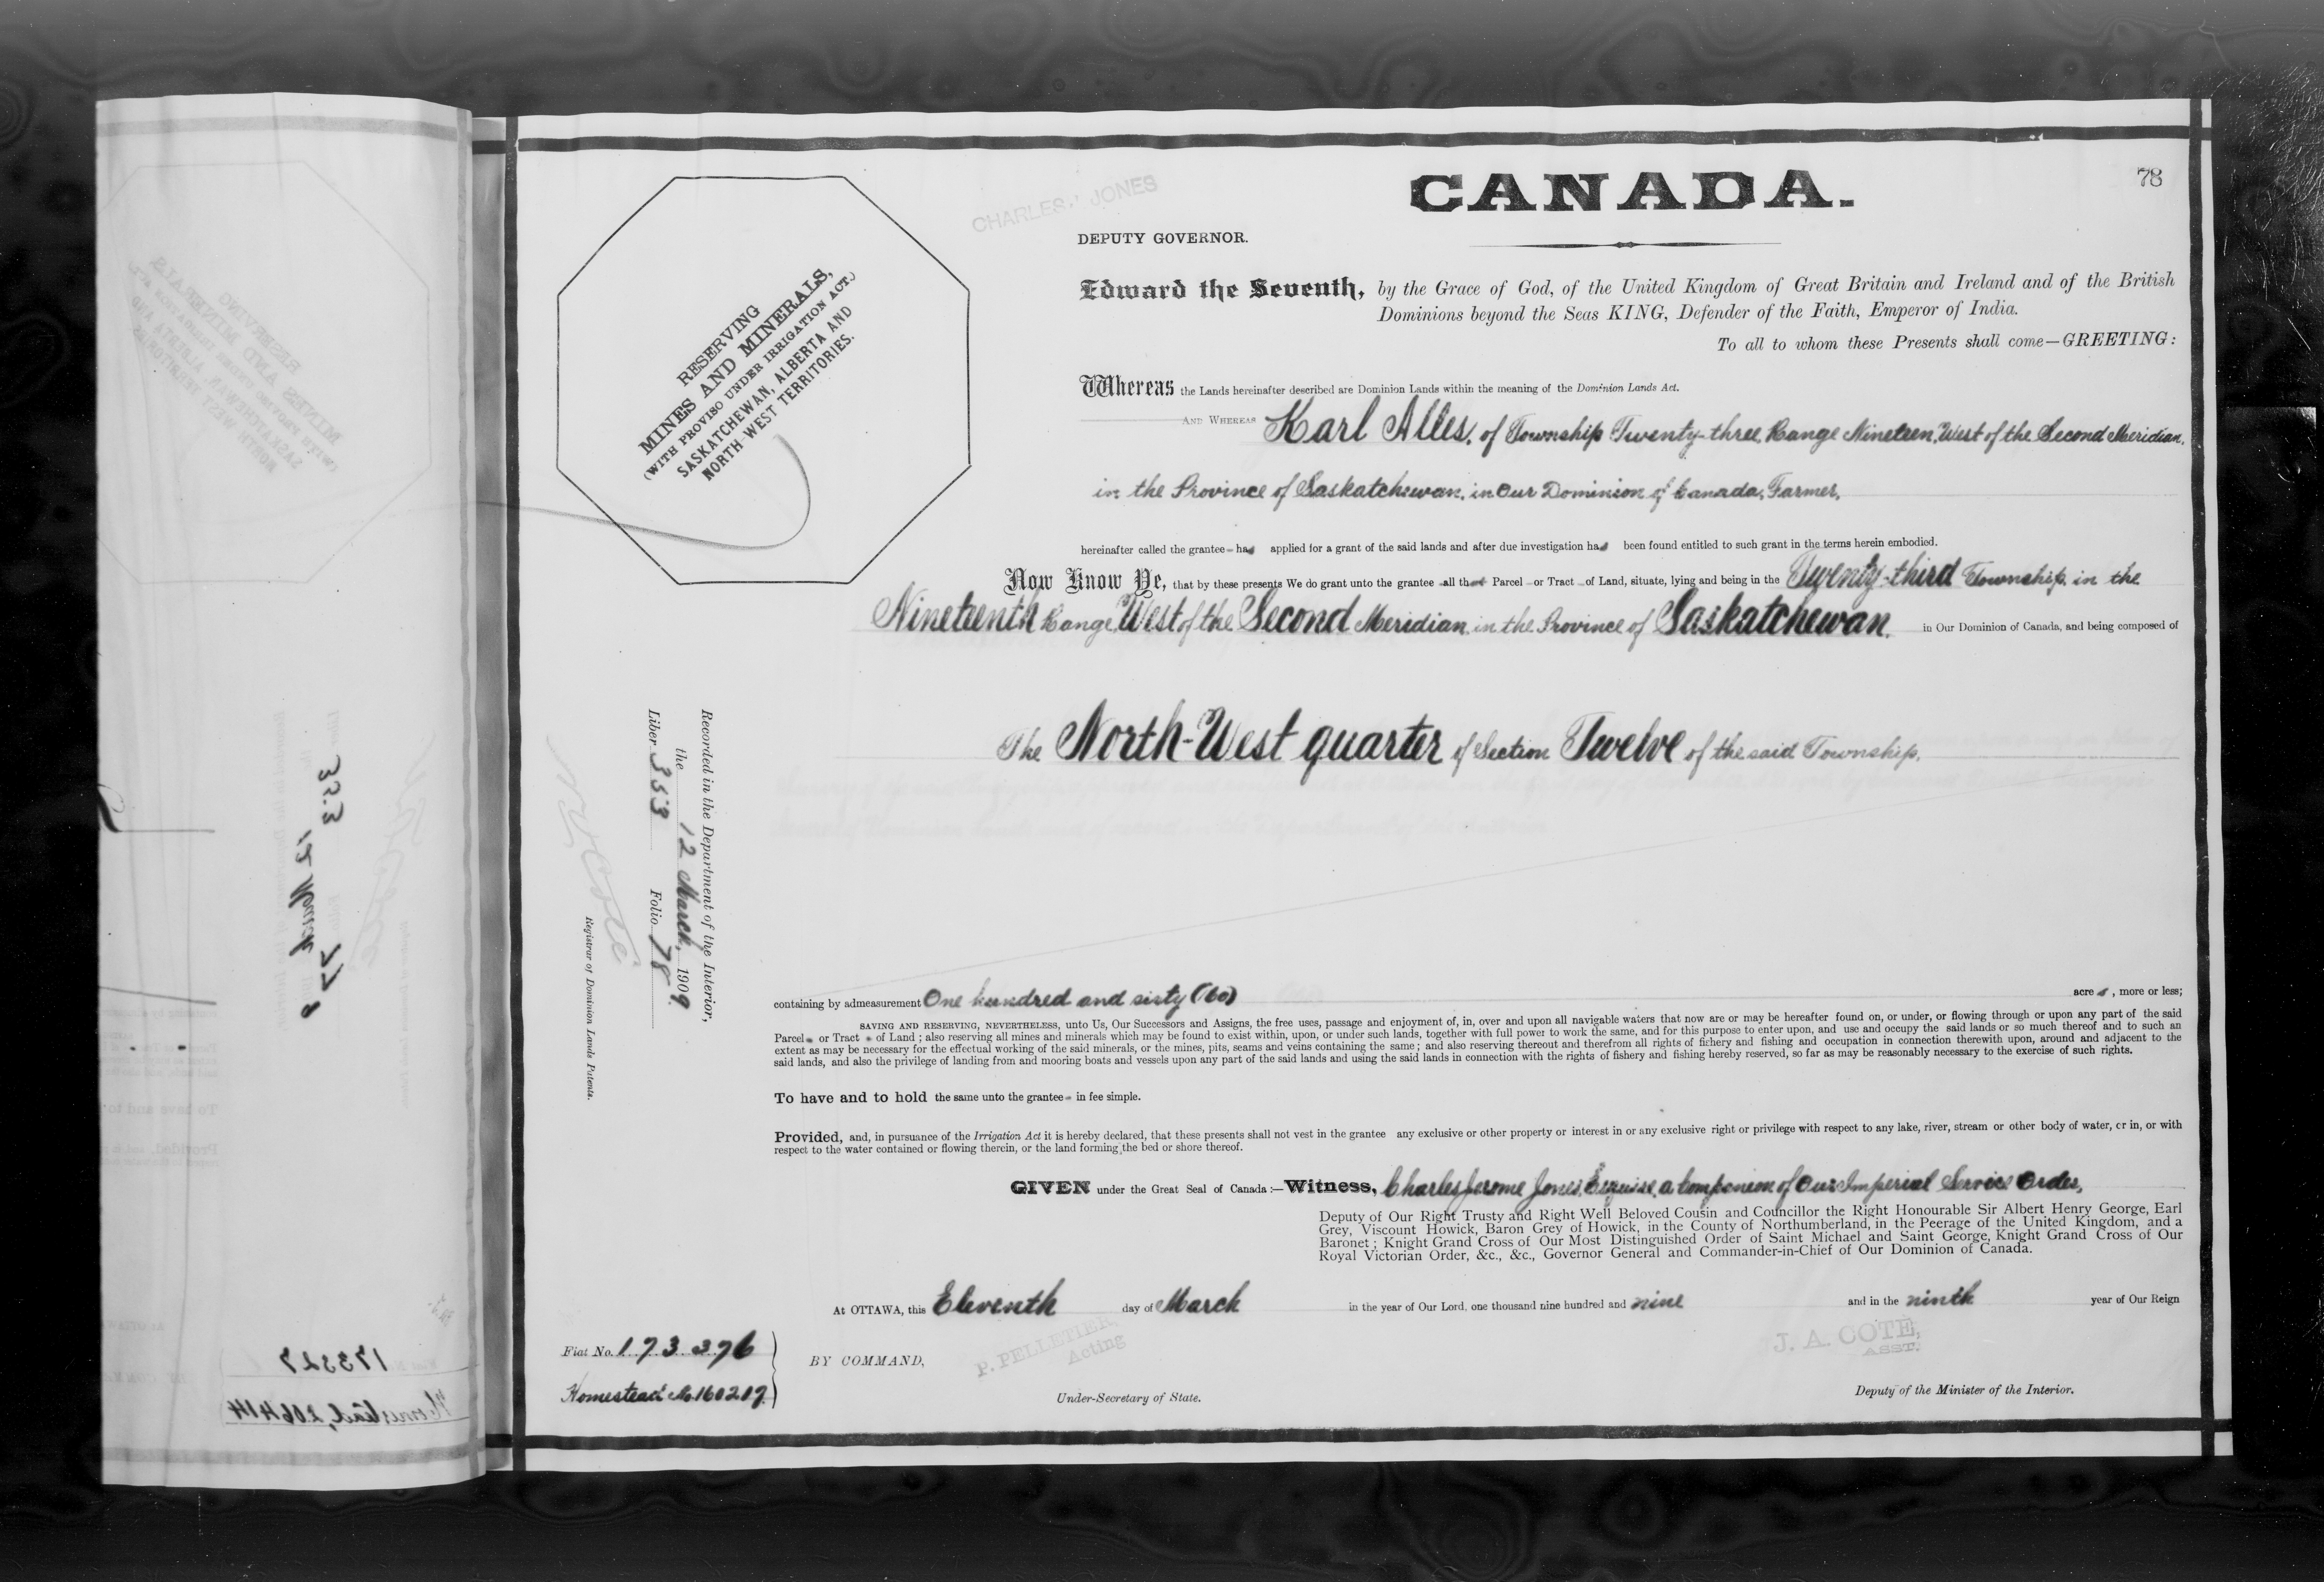 CANADA.
78
CHARLES J JONES
DEPUTY GOVERNOR.
Edward the Seventh, by the Grace of God, of the United Kingdom of Great Britain and Ireland and of the British
Dominions beyond the Seas KING, Defender of the Faith, Emperor of India.
To all to whom these Presents shall come—GREETING:
RESERVING
MINES AND MINERALS,
(WITH PROVISO UNDER IRRIGATION ACT.)
SASKATCHEWAN, ALBERTA AND
NORTH-WEST TERRITORIES.
Whereas the Lands hereinafter described are Dominion Lands within the meaning of the Dominion Lands Act.
AND WHEREAS Karl Alles, of Township Twenty-three, Range Nineteen, West of the Second Meridian,
in the Province of Saskatchewan, in Our Dominion of Canada, Farmer,
hereinafter called the grantee has applied for a grant of the said lands and after due investigation has been found entitled to such grant in the terms herein embodied.
Now Know Ye, that by these presents We do grant unto the grantee all that Parcel or Tract of Land, situate, lying and being in the Twenty-third Township, in the
Nineteenth Range, West of the Second Meridian, in the Province of Saskatchewan, in Our Dominion of Canada, and being composed of
The North-West quarter of Section Twelve of the said Township.
Recorded in the Department of the Interior,
the 12 March, 1909.
Liber 353 Folio 78
N O Coté
Registrar of Dominion Lands Patents.
containing by admeasurement One hundred and sixty (160) acres, more or less;
SAVING AND RESERVING, NEVERTHELESS, unto Us, Our Successors and Assigns, the free uses, passage and enjoyment of, in, over and upon all navigable waters that now are or may be hereafter found on, or under, or flowing through or upon any part of the said
Parcel or Tract of Land ; also reserving all mines and minerals which may be found to exist within, upon, or under such lands, together with full power to work the same, and for this purpose to enter upon, and use and occupy the said lands or so much thereof and to such an
extent as may be necessary for the effectual working of the said minerals, or the mines, pits, seams and veins containing the same ; and also reserving thereout and therefrom all rights of fichery and fishing and occupation in connection therewith upon, around and adjacent to the
said lands, and also the privilege of landing from and mooring boats and vessels upon any part of the said lands and using the said lands in connection with the rights of fishery and fishing hereby reserved, so far as may be reasonably necessary to the exercise of such rights.
To have and to hold the same unto the grantee in fee simple.
Provided, and, in pursuance of the Irrigation Act it is hereby declared, that these presents shall not vest in the grantee any exclusive or other property or interest in or any exclusive right or privilege with respect to any lake, river, stream or other body of water, or in, or with
respect to the water contained or flowing therein, or the land forming the bed or shore thereof.
GIVEN under the Great Seal of Canada :—Witness, Charles Jerome Jones, Esquire, a Companion of Our Imperial Service Order,
Deputy of Our Right Trusty and Right Well Beloved Cousin and Councillor the Right Honourable Sir Albert Henry George, Earl
Grey, Viscount Howick, Baron Grey of Howick, in the County of Northumberland, in the Peerage of the United Kingdom, and a
Baronet ; Knight Grand Cross of Our Most Distinguished Order of Saint Michael and Saint George, Knight Grand Cross of Our
Royal Victorian Order, &c., &c., Governor General and Commander-in-Chief of Our Dominion of Canada.
At OTTAWA, this Eleventh day of March in the year of Our Lord, one thousand nine hundred and nine and in the ninth year of Our Reign
Fiat No. 173376
Homestead No. 160219.
BY COMMAND,
P. PELLETIER,
Acting
Under-Secretary of State.
J. A. COTE,
ASST.
Deputy of the Minister of the Interior.